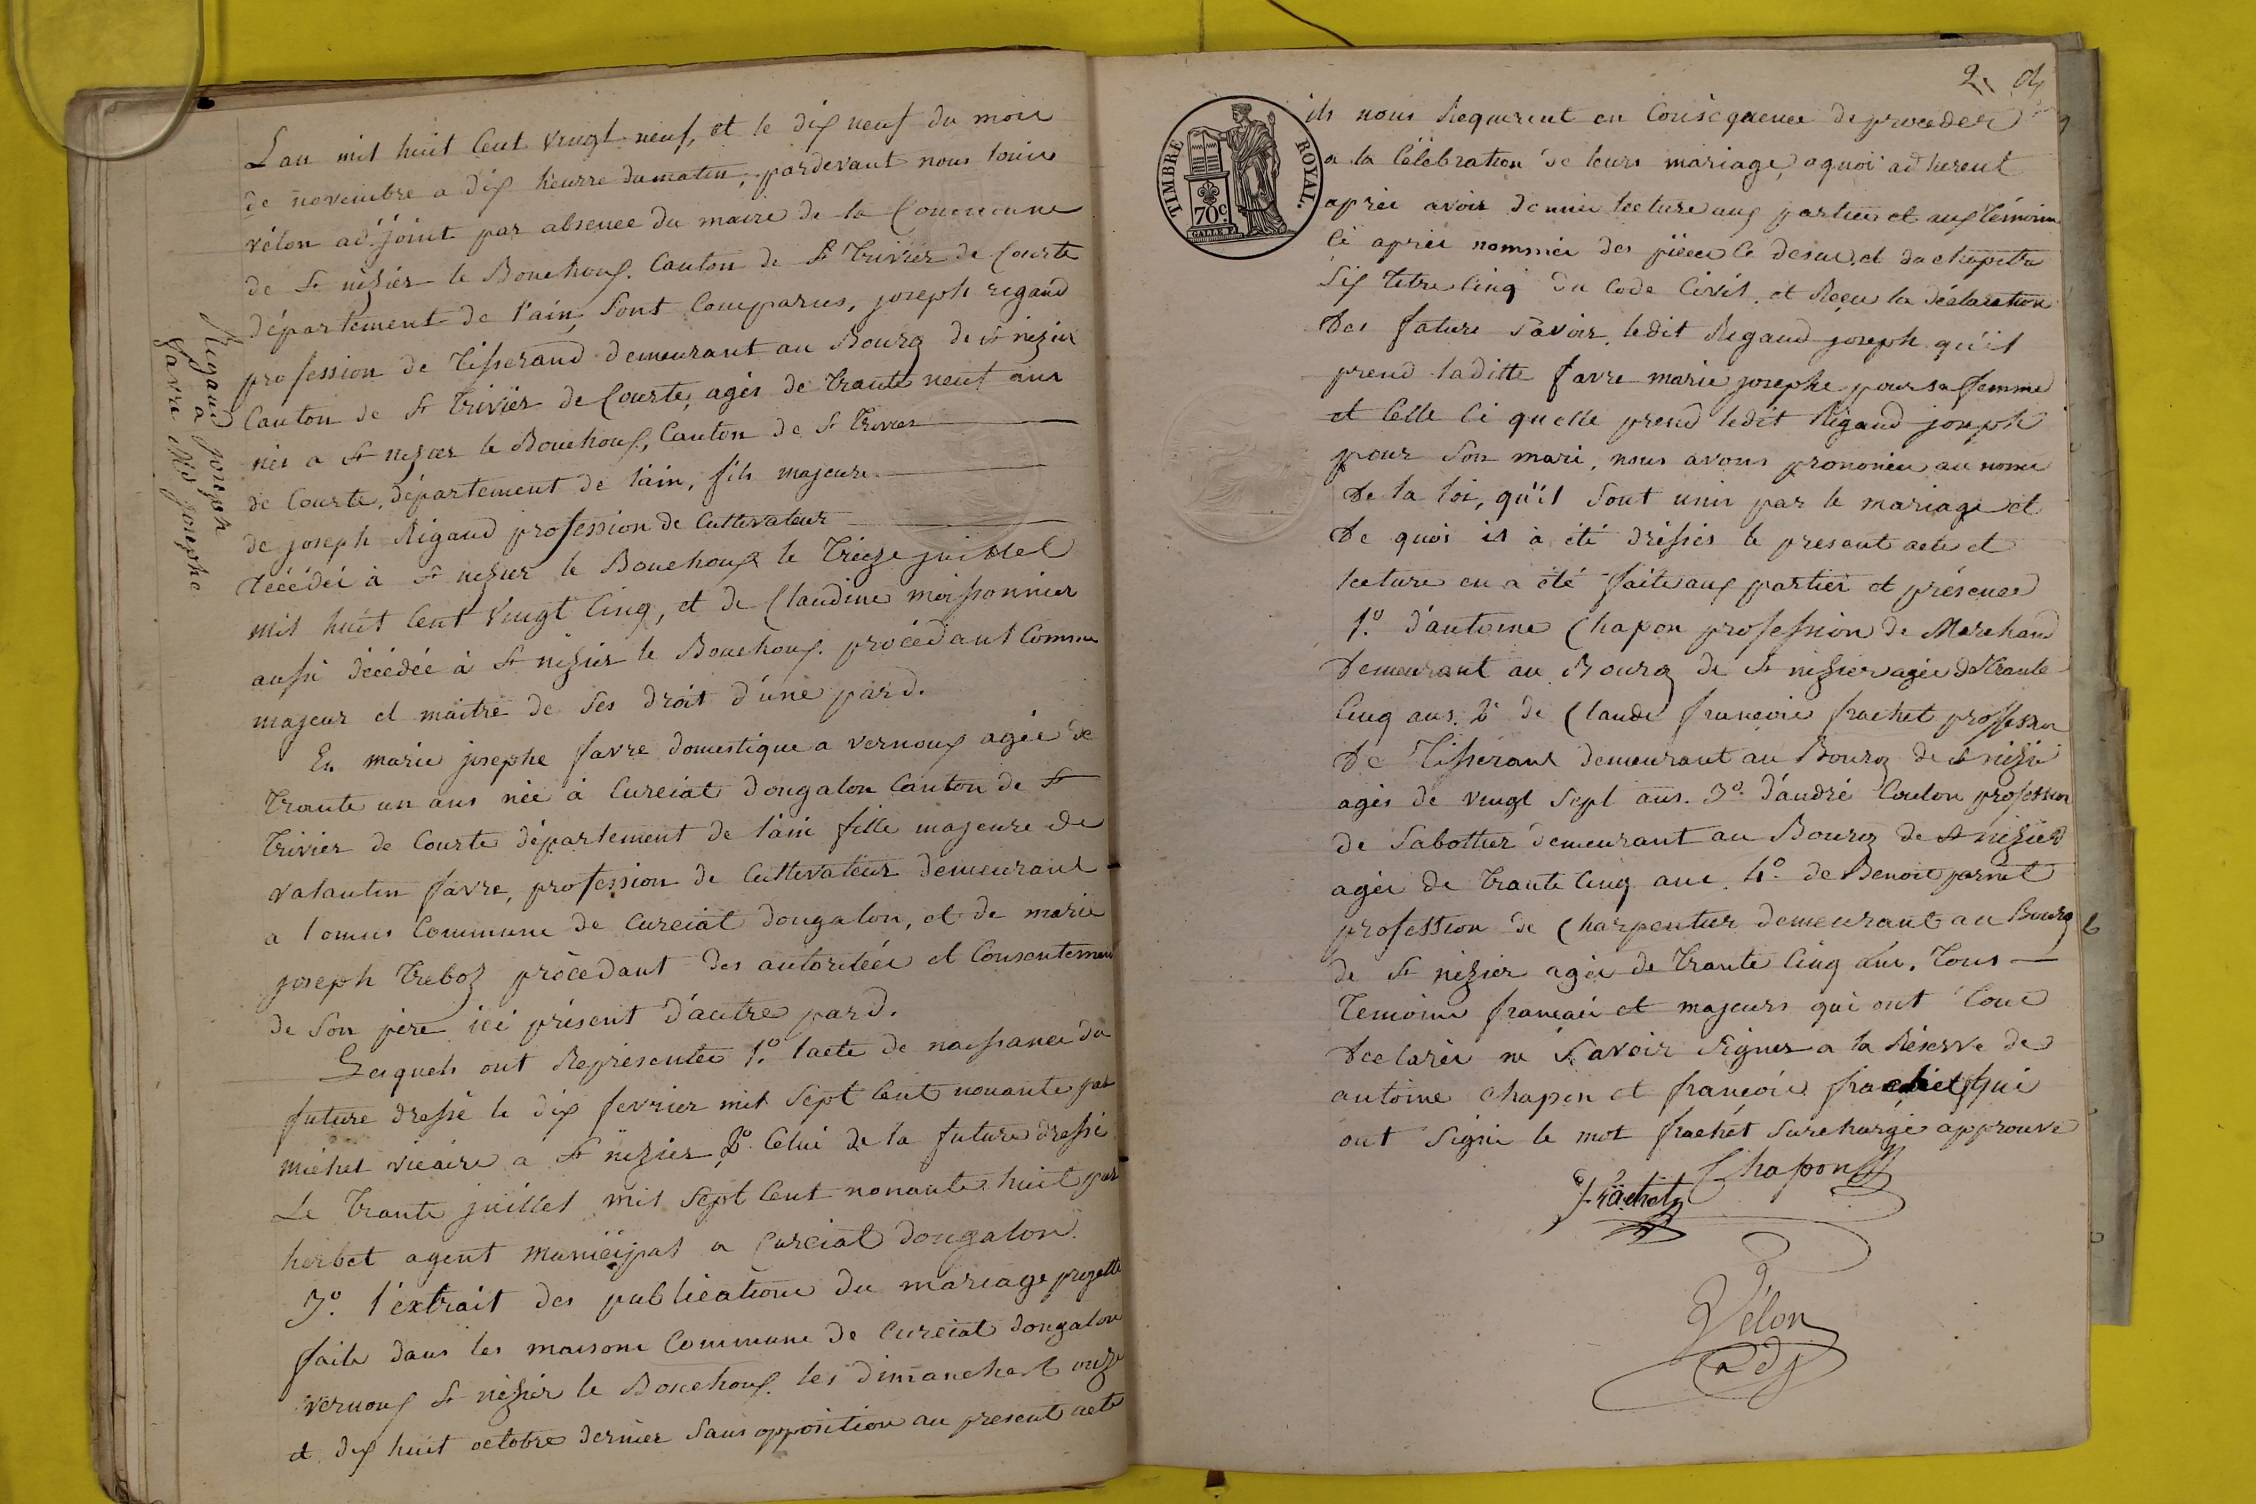 L'an mil huit Cent vingt neuf, et le dix neuf du mois
de novembre a dix heurre du matin, pardevant nous louis
vélon adjoint par absence du maire de la Commune
de St nizier le Bouchoux. Canton de St Trivier de Courte
département de l'ain, sont Comparus, joseph rigaud
profession de Tisserand demeurant au Bourg de st nizier
Canton de St Trivier de Courte, agés de trante neuf ans
née a St nizier le Bouchoux, Canton de St Trivier
de Courte, département de lain, fils majeure
de joseph Rigaud profession de Cultivateur
décédée à St nizier le Bouchoux le treize juillet
mil huit Cent vingt Cinq, et de Claudine moissonnier
aussi décédée à St nizier le Bouchoux. procédant Comme
majeur et maitre de ses droit d'une pard.
Et marie josephe favre domestique a vernoux agée de
trante un ans née à Curciat dongalon Canton de St
Trivier de Courte département de l'ain fille majeure de
valantin favre, profession de Cultivateur demeurant
a Commune de Curciat dongalon, et de marie
joseph Treboz procèdant des autoritées et Consentement
de son père ici présent d'autre pard.
Lesquels ont Représentée 1o. lacte de naissance du
future dressé le dix fevrier mil sept Cent nonante par
michel vicaire a St nizier 2o Celui de la future dressé
Le Trante juillet mil sept Cent nonante huit par
herbet agent municipal a Curciat dongalon.
3o. l'extrait des publications du mariage projetté
faite dans les maisons Commune de Curciat dongalon
vernoux St nizier le Bouchoux. les dimanche onze
et dix huit octobre dernier sans opposition au present acte
Rigaud joseph
a
favre Mie josephe
2
TIMBRE ROYAL.
70c.
ils nous Requierent en Conséquence de proceder
a la Célébration de leurs mariage, aquoi adherent
après avoir donnée lecture aux parties et aux témoins
Ci après nommée des pièces Ci desus, et du chapitre
Six titre Cinq du Code Civil, et Reçu la déclaration
des future savoir, ledit Rigaud joseph qu'il
prend laditte favre marie josephe pour sa femme
et Celle Ci quelle prend ledit Rigaud joseph
pour son mari, nous avons prononcé au nome
de la loi, qu'il sont unir par le mariage et
de quoi il à été dréssés le presant acte et
lecture en a été faite aux partier et présence
1o. d'antoine Chapon profession de Marchand
demeurant au Bourg de St nizier agée de trante
Cinq ans. 2o de Claude françois frachet profession
de Tisserand demeurant au Bourg de St nizier
agés de vingt sept ans. 3o. d'andré Coulon profession
de Sabottier demeurant au Bourg de St nizier
agée de trante Cinq ans. 4o. de Benoit parnet
profession de Charpentier demeurant au Bourg
de St nizier agée de trante Cinq ans. Tous
Temoins français et majeurs qui ont tous
declarée ne savoir signer a la Réserve de
antoine chapon et françois frachet qui
ont signé le mot frachet surchargé approuvé
Frachet Chapon
Vélon
adj